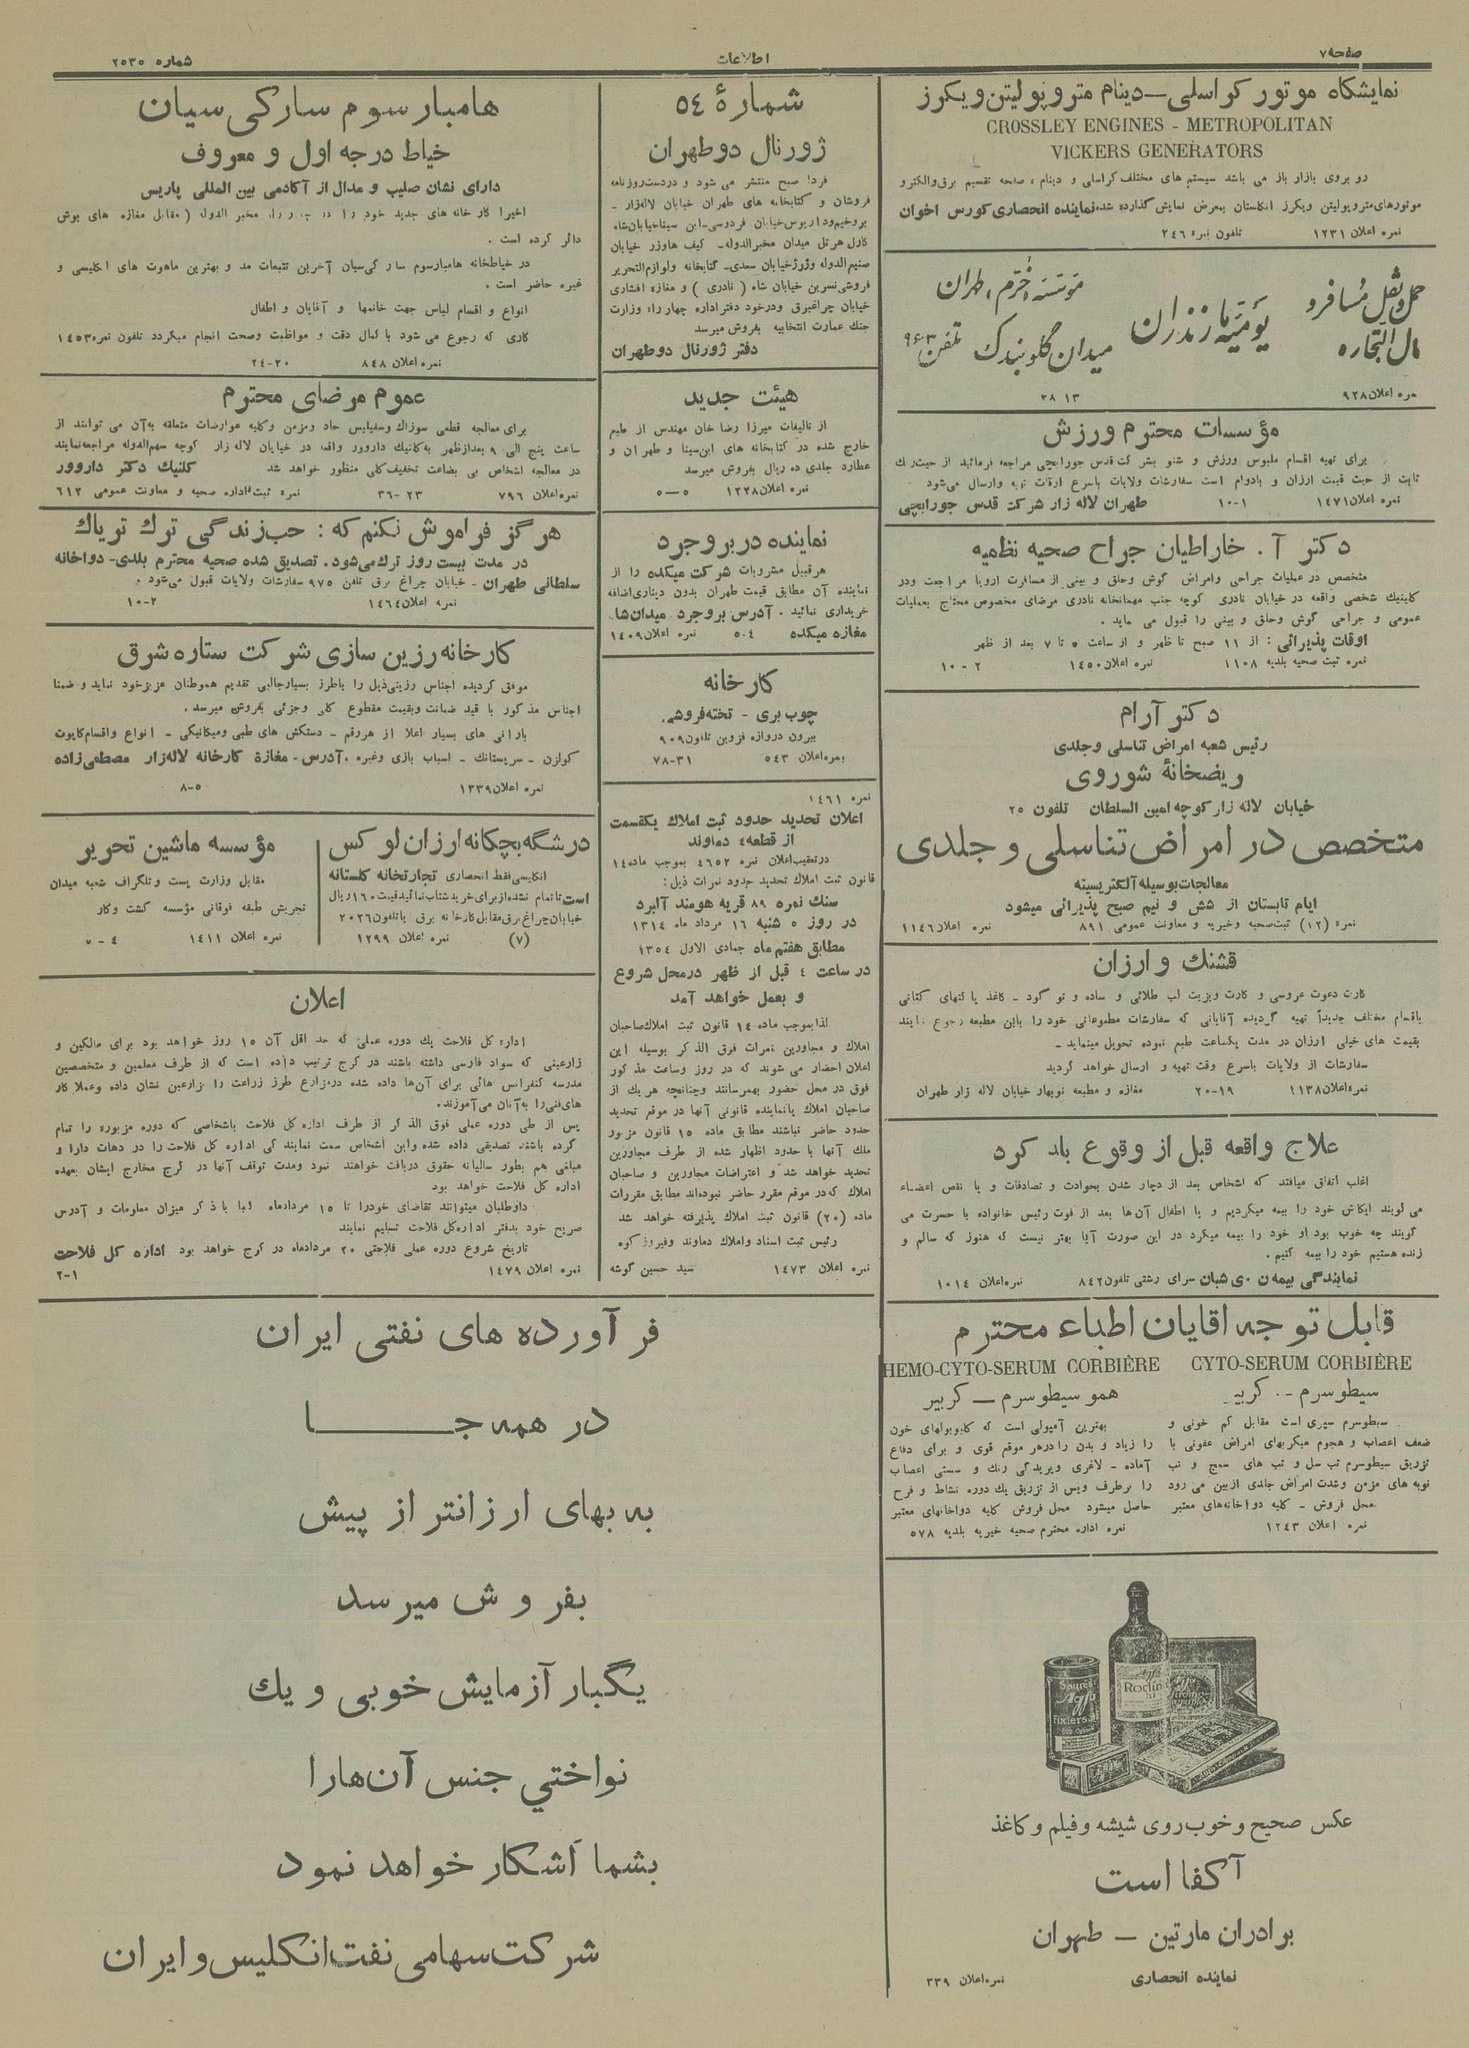 صفحه ۷
اطلاعات
شماره ۲۵۳۵
نمایشگاه موتور کراسلی — دینام متروپولیتن ویکرز
CROSSLEY ENGINES - METROPOLITAN
VICKERS GENERATORS
رو بروی بازار باز می باشد سیستم های مختلف کراسلی و دینام ، صفحه تقسیم برق والکترو
موتورهای متروپولیتن ویکرز انگلستان بمعرض نمایش گذارده شده نماینده انحصاری کورس اخوان
نمره اعلان ۱۲۳۱ تلفون نمره ۲۴۶
حمل و نقل مسافر و
مال التجاره
یومیه مازندران
موسسه محترم طهران
میدان گلوبندک تلفن ۹۶۳
نمره اعلان ۹۲۸ ۱۳ ۲۸
مؤسسات محترم ورزش
برای تهیه اقسام ملبوس ورزش و شنو بشرکت قدس جورابچی مراجعه فرمائید از حیث رنگ
ثابت از حیث قیمت ارزان و بادوام است سفارشات ولایات باسرع اوقات تهیه وارسال می‌شود
نمره اعلان ۱۴۷۱ ۱-۱۰ طهران لاله زار شرکت قدس جورابچی
دکتر آ. خاراطیان جراح صحیه نظمیه
متخصص در عملیات جراحی وامراض گوش وحلق و بینی از مسافرت اروپا مراجعت ودر
کلینیک شخصی واقعه در خیابان نادری کوچه جنب مهمانخانه نادری مرضای مخصوص محتاج بعملیات
عمومی و جراحی گوش وحلق و بینی را قبول می نماید .
اوقات پذیرائی : از ۱۱ صبح تا ظهر و از ساعت ۵ تا ۷ بعد از ظهر
نمره ثبت صحیه بلدیه ۱۱۰۸ نمره اعلان ۱۴۵۰ ۲ - ۱۰
دکتر آرام
رئیس شعبه امراض تناسلی وجلدی
ریضخانهٔ شوروی
خیابان لاله زار کوچه امین السلطان تلفون ۲۵
متخصص در امراض تناسلی و جلدی
معالجات بوسیله آلکتریسیته
ایام تابستان از شش و نیم صبح پذیرائی میشود
نمره (۱۲) ثبت صحیه وخیریه و معاونت عمومی ۸۹۱ نمره اعلان ۱۱۴۶
قشنگ و ارزان
کارت دعوت عروسی و کارت ویزیت لب طلائی و ساده و تو گود - کاغذ پاکتهای کتانی
باقسام مختلف جدیداً تهیه گردیده آقایانی که سفارشات مطبوعاتی خود را باین مطبعه رجوع نمایند
بقیمت های خیلی ارزان در مدت یکساعت طبع نموده تحویل مینماید -
سفارشات از ولایات باسرع وقت تهیه و ارسال خواهد گردید
نمره اعلان ۱۱۳۸ ۱۹-۲۰ مغازه و مطبعه نوبهار خیابان لاله زار طهران
علاج واقعه قبل از وقوع باید کرد
اغلب اتفاق میافتد که اشخاص بعد از دچار شدن بحوادث و تصادفات و یا نقص اعضاء
می گویند ایکاش خود را بیمه میکردیم و یا اطفال آن ها بعد از فوت رئیس خانواده با حسرت می
گویند چه خوب بود او خود را بیمه میکرد در این صورت آیا بهتر نیست که هنوز که سالم و
زنده هستیم خود را بیمه کنیم .
سرای رشتی تلفون ۸۴۲ نمره اعلان ۱۰۱۴
قابل توجه آقایان اطباء محترم
CYTO-SERUM CORBIÈRE
سیطوسرم — کربیر
سیطوسرم سپری است مقابل کم خونی و
ضعف اعصاب و هجوم میکربهای امراض عفونی با
تزریق سیطوسرم تب سل و تب های سمج و تب
نوبه های مزمن وشدت امراض جلدی ازبین می رود
محل فروش - کلیه دواخانه‌های معتبر
نمره اعلان ۱۲۴۳
HEMO-CYTO-SERUM CORBIÈRE
همو سیطوسرم — کربیر
بهترین آمپولی است که گلوبولهای خون
را زیاد و بدن را در هر موقع قوی و برای دفاع
آماده - لاغری وپریدگی رنگ و سستی اعصاب
را برطرف وپس از تزریق یک دوره نشاط و فرح
حاصل میشود محل فروش کلیه دواخانهای معتبر
نمره اداره محترم صحیه خیریه بلدیه ۵۷۸
Agfa
Rodinal
Agfa
عکس صحیح و خوب روی شیشه و فیلم و کاغذ
آگفا است
برادران مارتین — طهران
نماینده انحصاری نمره اعلان ۳۳۹
شمارهٔ ۵۴
ژورنال دو طهران
فردا صبح منتشر می شود و دردست روزنامه
فروشان و کتابخانه های طهران خیابان لاله‌زار -
بروخیم خیابان فردوسی - ابن سینا خیابان شاه
کیف هاوزر خیابان
خیابان سعدی - کتابخانه ولوازم التحریر
فروشی نسرین خیابان شاه ( نادری ) و مغازه افشاری
خیابان چراغبرق ودرخود دفتر اداره چهار راه وزارت
جنگ عمارت انتخابیه بفروش میرسد
دفتر ژورنال دو طهران
هیئت جدید
از تالیفات میرزا رضا خان مهندس از طبع
خارج شده در کتابخانه های ابن‌سینا و طهران و
عطارد جلدی ده ریال بفروش میرسد
نمره اعلان ۱۲۲۸ ۵—۵
نماینده در بروجرد
هر قبیل مشروبات شرکت میکده را از
نماینده آن مطابق قیمت طهران بدون دیناری اضافه
خریداری نمائید . آدرس بروجرد میدان شاه
مغازه میکده ۴-۵ نمره اعلان ۱۴۰۹
کارخانه
چوب بری - تخته فروشی
بیرون دروازه قزوین تلفون ۹۰۹
نمره اعلان ۵۴۳ ۳۱-۷۸
نمره ۱۴۶۱
اعلان تحدید حدود ثبت املاک یکقسمت
از قطعه ٤ دماوند
درتعقیب اعلان نمره ٤٦٥٢ بموجب ماده ١٤
قانون ثبت املاک تحدید حدود نمرات ذیل :
سنگ نمره ۸۹ قریه هومند آبرد
در روز ۵ شنبه ۱۶ مرداد ماه ۱۳۱۴
مطابق هفتم ماه جمادی الاول ۱۳۵۴
در ساعت ٤ قبل از ظهر درمحل شروع
و بعمل خواهد آمد
لذا بموجب ماده ١٤ قانون ثبت املاک صاحبان
املاک و مجاورین نمرات فوق الذکر بوسیله این
اعلان احضار می شوند که در روز وساعت مذکور
فوق در محل حضور بهمرسانند وچنانچه هر یک از
صاحبان املاک یانماینده قانونی آنها در موقع تحدید
حدود حاضر نباشند مطابق ماده ۱۵ قانون مزبور
ملک آنها با حدود اظهار شده از طرف مجاورین
تحدید خواهد شد و اعتراضات مجاورین و صاحبان
املاک که در موقع مقرر حاضر نبوده‌اند مطابق مقررات
ماده (۲۰) قانون ثبت املاک پذیرفته خواهد شد
رئیس ثبت اسناد واملاک دماوند وفیروزکوه
نمره اعلان ۱۴۷۳ سید حسین گوشه
هامبارسوم سارکی سیان
خیاط درجه اول و معروف
دارای نشان صلیب و مدال از آکادمی بین المللی پاریس
اخیرا کارخانه های جدید خود را در چهار راه مخبر الدوله ( مقابل مغازه های بوش
دائر کرده است .
در خیاطخانه هامبارسوم سارکی‌سیان آخرین تتبعات مد و بهترین ماهوت های انگلیسی و
غیره حاضر است .
انواع و اقسام لباس جهت خانمها و آقایان و اطفال
کاری که رجوع می شود با کمال دقت و مواظبت وصحت انجام میگردد تلفون نمره ۱۴۵۳
نمره اعلان ۸۴۸ ۲۰-۲۴
عموم مرضای محترم
برای معالجه قطعی سوزاک وسفیلیس حاد ومزمن وکلیه عوارضات متعلقه به‌آن می توانند از
ساعت پنج الی ۹ بعدازظهر به‌کلنیک داروور واقعه در خیابان لاله زار کوچه سهم‌الدوله مراجعه‌نمایند
در معالجه اشخاص بی بضاعت تخفیف کلی منظور خواهد شد کلنیک دکتر داروور
نمره اعلان ۷۹۶ ۲۳-۳۶ نمره ثبت اداره صحیه و معاونت عمومی ۶۱۲
هرگز فراموش نکنم که : حب زندگی ترک تریاک
در مدت بیست روز ترک می‌شود. تصدیق شده صحیه محترم بلدی- دواخانه
سلطانی طهران - خیابان چراغ برق تلفن ۹۷۵ سفارشات ولایات قبول می‌شود .
نمره اعلان ۱۴۶۴ ۲-۱۰
کارخانه رزین سازی شرکت ستاره شرق
موفق گردیده اجناس رزینی ذیل را باطرز بسیارجالبی تقدیم هموطنان عزیزخود نماید و ضمنا
اجناس مذکور با قید ضمانت وبقیمت مقطوع کلی وجزئی بفروش میرسد .
بارانی های بسیار اعلا از هر رقم - دستکش های طبی ومیکانیکی - انواع واقسام کاپوت
کولزن - سرپستانک - اسباب بازی وغیره . آدرس - مغازهٔ کارخانه لاله‌زار مصطفی زاده
نمره اعلان ۱۳۳۹ ۵-۸
درشگه بچگانه ارزان لوکس
انگلیسی فقط انحصاری تجارتخانه گلستانه
است تا تمام نشده از برای خرید شتاب نمائید قیمت ۱۶۰ ریال
خیابان چراغ برق مقابل کارخانه برق یاتلفون ۲۰۲۶
نمره اعلان ۱۲۹۹ (۷)
مؤسسه ماشین تحریر
مقابل وزارت پست وتلگراف شعبه میدان
تجریش طبقه فوقانی مؤسسه گشت وکار
نمره اعلان ۱۴۱۱ ۴ -
اعلان
اداره کل فلاحت یک دوره عملی که حد اقل آن ۱۵ روز خواهد بود برای مالکین و
زارعینی که سواد فارسی داشته باشند در کرج ترتیب داده است که از طرف معلمین و متخصصین
مدرسه کنفرانس هائی برای آن‌ها داده شده درمزارع طرز زراعت را بزارعین نشان داده وعملا کار
های‌فنی را به‌آنان می‌آموزند.
پس از طی دوره عملی فوق الذکر از طرف اداره کل فلاحت باشخاصی که دوره مزبوره را تمام
کرده باشند تصدیقی داده شده واین اشخاص سمت نمایندگی اداره کل فلاحت را در دهات دارا و
مبلغی هم بطور سالیانه حقوق دریافت خواهند نمود ومدت توقف آنها در کرج مخارج ایشان بعهده
اداره کل فلاحت خواهد بود
داوطلبان میتوانند تقاضای خودرا تا ۱۵ مردادماه کتبا با ذکر میزان معلومات و آدرس
صریح خود بدفتر اداره‌کل فلاحت تسلیم نمایند
تاریخ شروع دوره عملی فلاحتی ۲۰ مردادماه در کرج خواهد بود اداره کل فلاحت
نمره اعلان ۱۴۷۹ ۱-۲
فرآورده های نفتی ایران
در همه جا
به بهای ارزانتر از پیش
بفروش میرسد
یکبار آزمایش خوبی و یک
نواختي جنس آن‌ها را
بشما آشکار خواهد نمود
شرکت سهامی نفت انگلیس و ایران